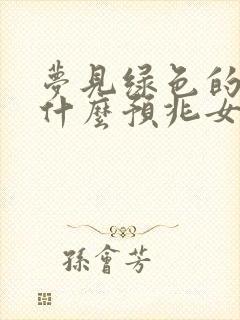 夢見绿色的
什麼預兆女
孫會芳